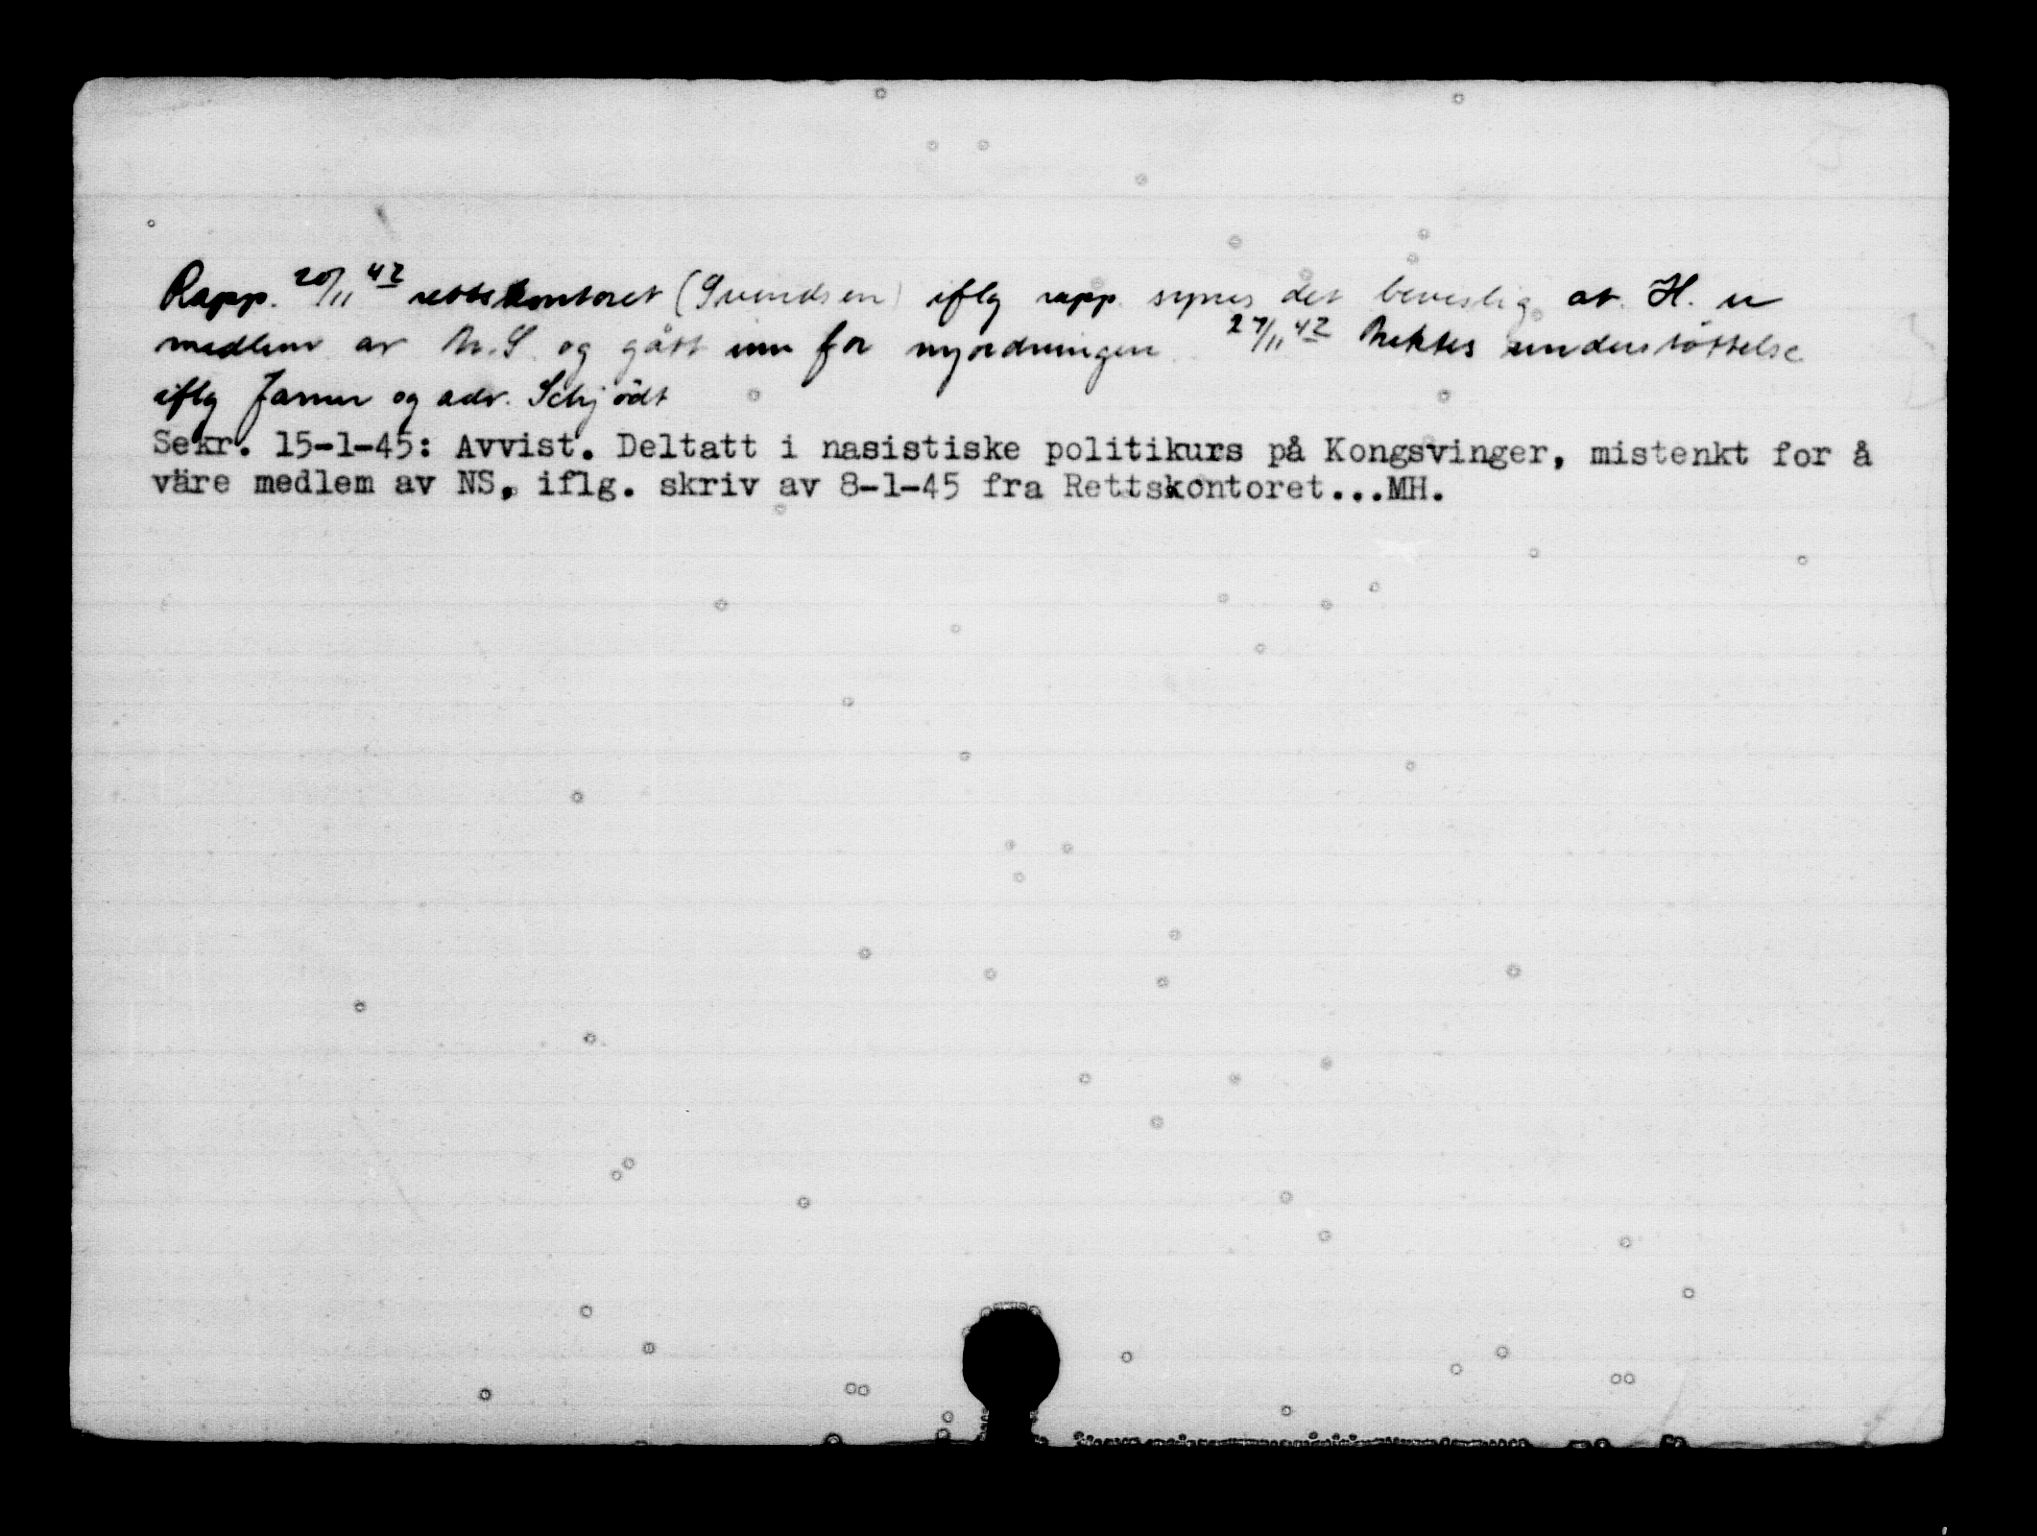 Rapp. 20/11 42 rettskontoret (Svendsen) iflg rapp. synes det bevislig at H. er
medlem av N.S. og gått inn for nyordningen. 27/11 42 Nektes understöttelse
iflg Janur og adv. Schjödt
Sekr. 15-1-45: Avvist. Deltatt i nasistiske politikurs på Kongsvinger, mistenkt for å
väre medlem av NS, iflg. skriv av 8-1-45 fra Rettskontoret...MH.